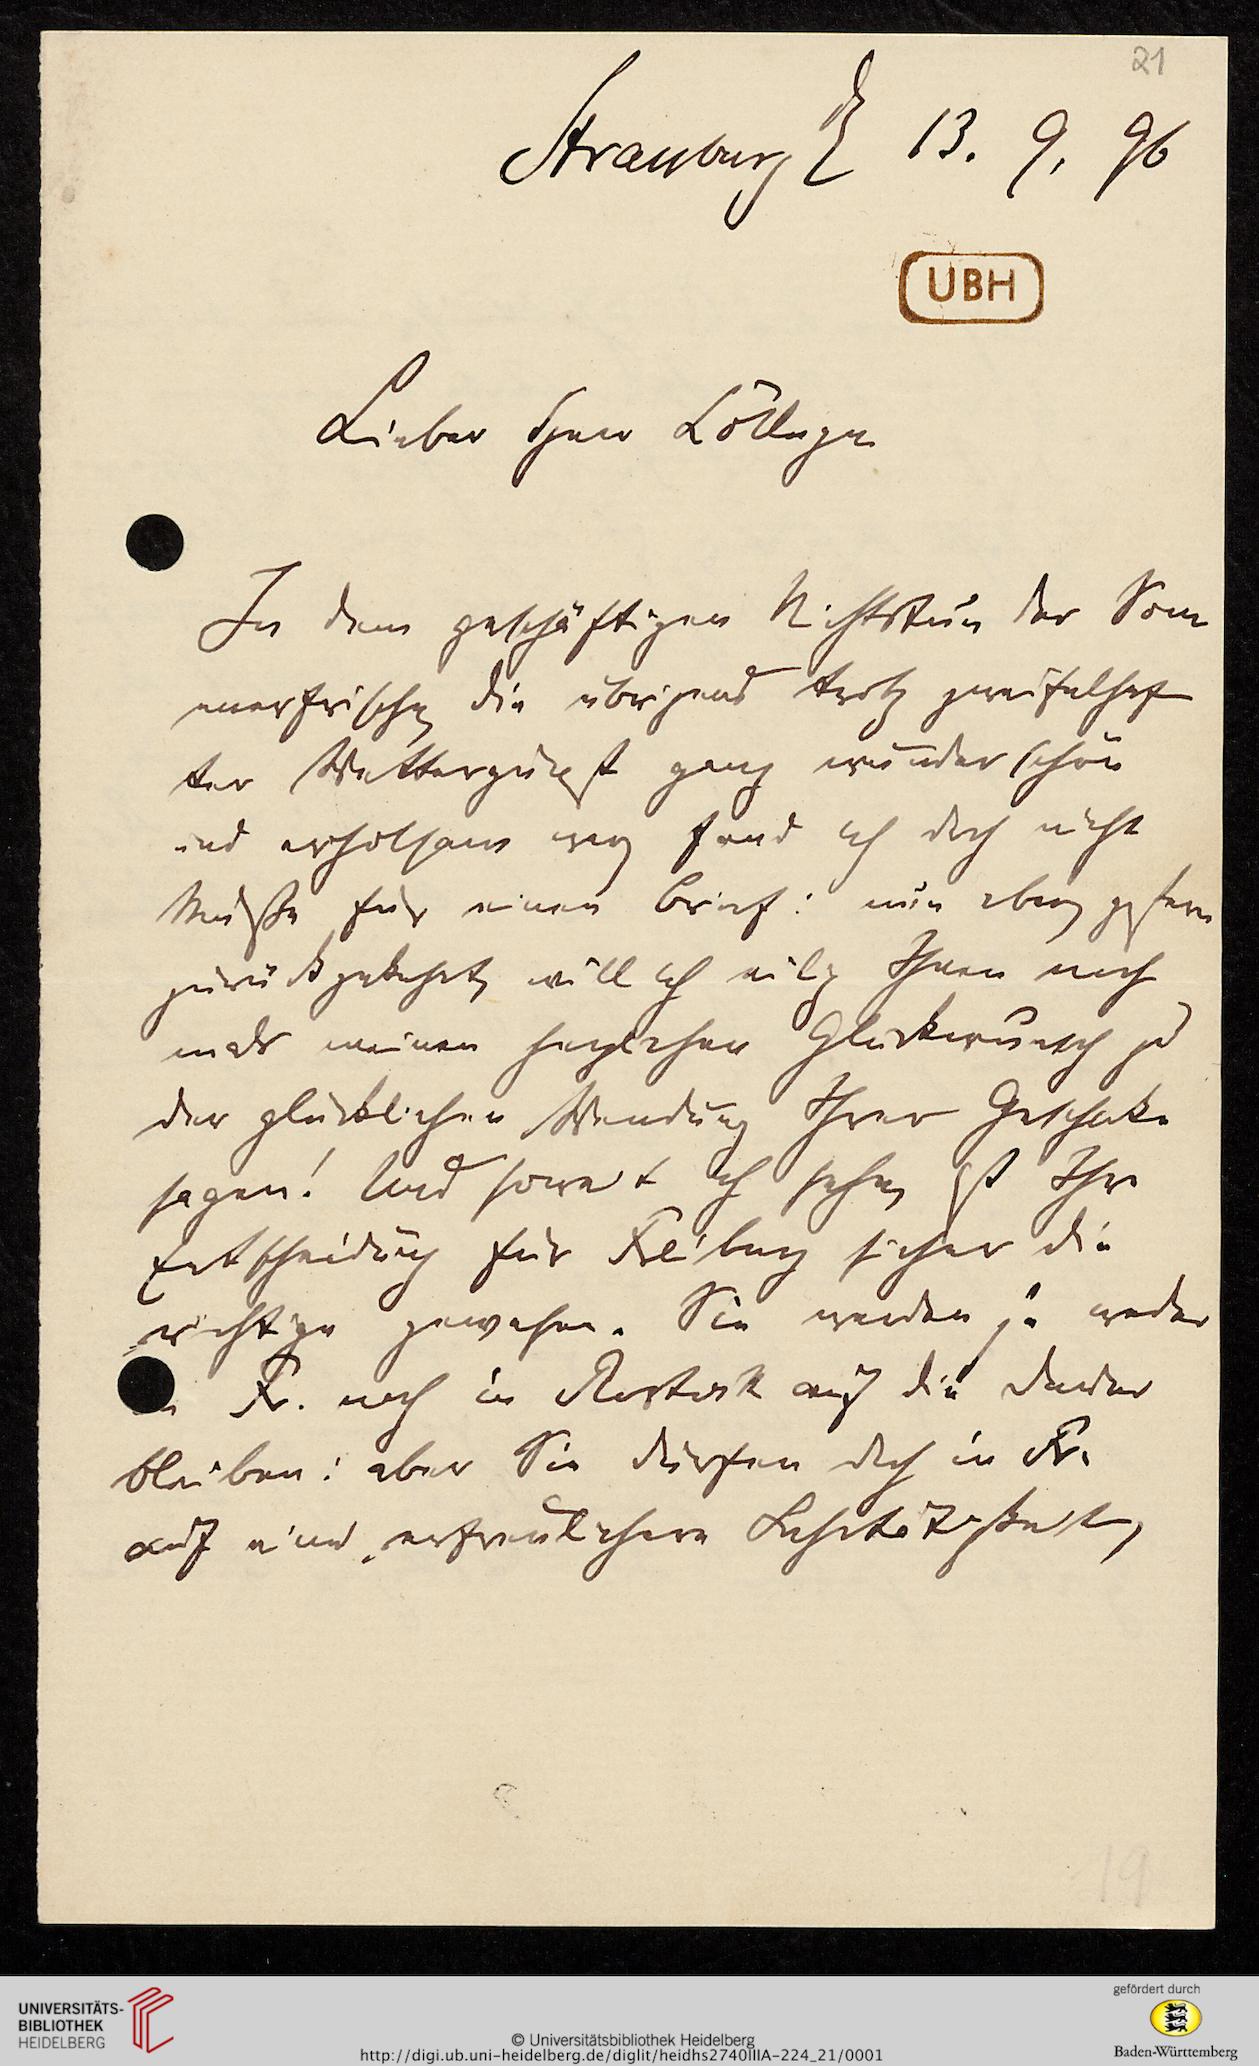 21
Strassburg 13. 9. 96
UBH
Lieber Herr College
In dem geschäftigen Nichtstun der Som
merfrische, die übrigens trotz zweifelhaf
ter Wettergunst ganz wunderschön
und erholsam war, fand ich doch nicht
Muße für einen Brief: nun eben gestern
zurückgekehrt, will ich eilig Ihnen noch
mals meinen herzlichen Glückwunsch zu
der glücklichen Wendung Ihrer Geschicke
sagen! Und soweit ich sehe, ist Ihre
Entscheidung für Freiburg sicher die
richtige gewesen. Sie werden ja weder
in Fr. noch in Rostock auf die Dauer
bleiben: aber Sie dürfen doch in Fr.
auf eine erfreulichere Lehrtätigkeit,
19
UNIVERSITÄTS-
BIBLIOTHEK
HEIDELBERG
© Universitätsbibliothek Heidelberg
http://digi.ub.uni-heidelberg.de/diglit/heidhs2740IIIA-224_21/0001
gefördert durch
Baden-Württemberg